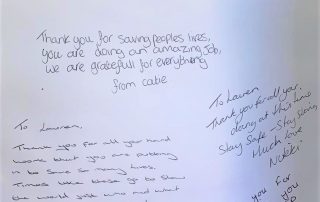 Thank you for saving peoples lives,
you are doing an amazing job,
we are gratefull for everything
from catie
To Lauren
Thank you for all your
doing at this time
Stay Safe - Stay Strong
Much love
Nikki
To Lauren,
Thank you for all your hard
work that you are putting
in to save so many lives,
Times like these go to show
the world just who and what
you for
you